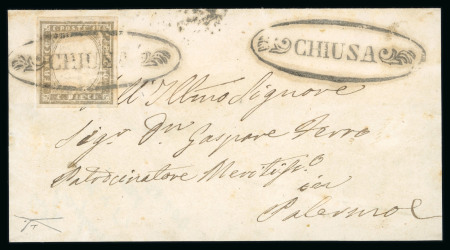 C. POSTE
CHIUSA
CHIUSA
All' Illmo Signore
Sigr. Dn. Gaspare Ferro
Patrocinatore Meritissmo
in
Palermo